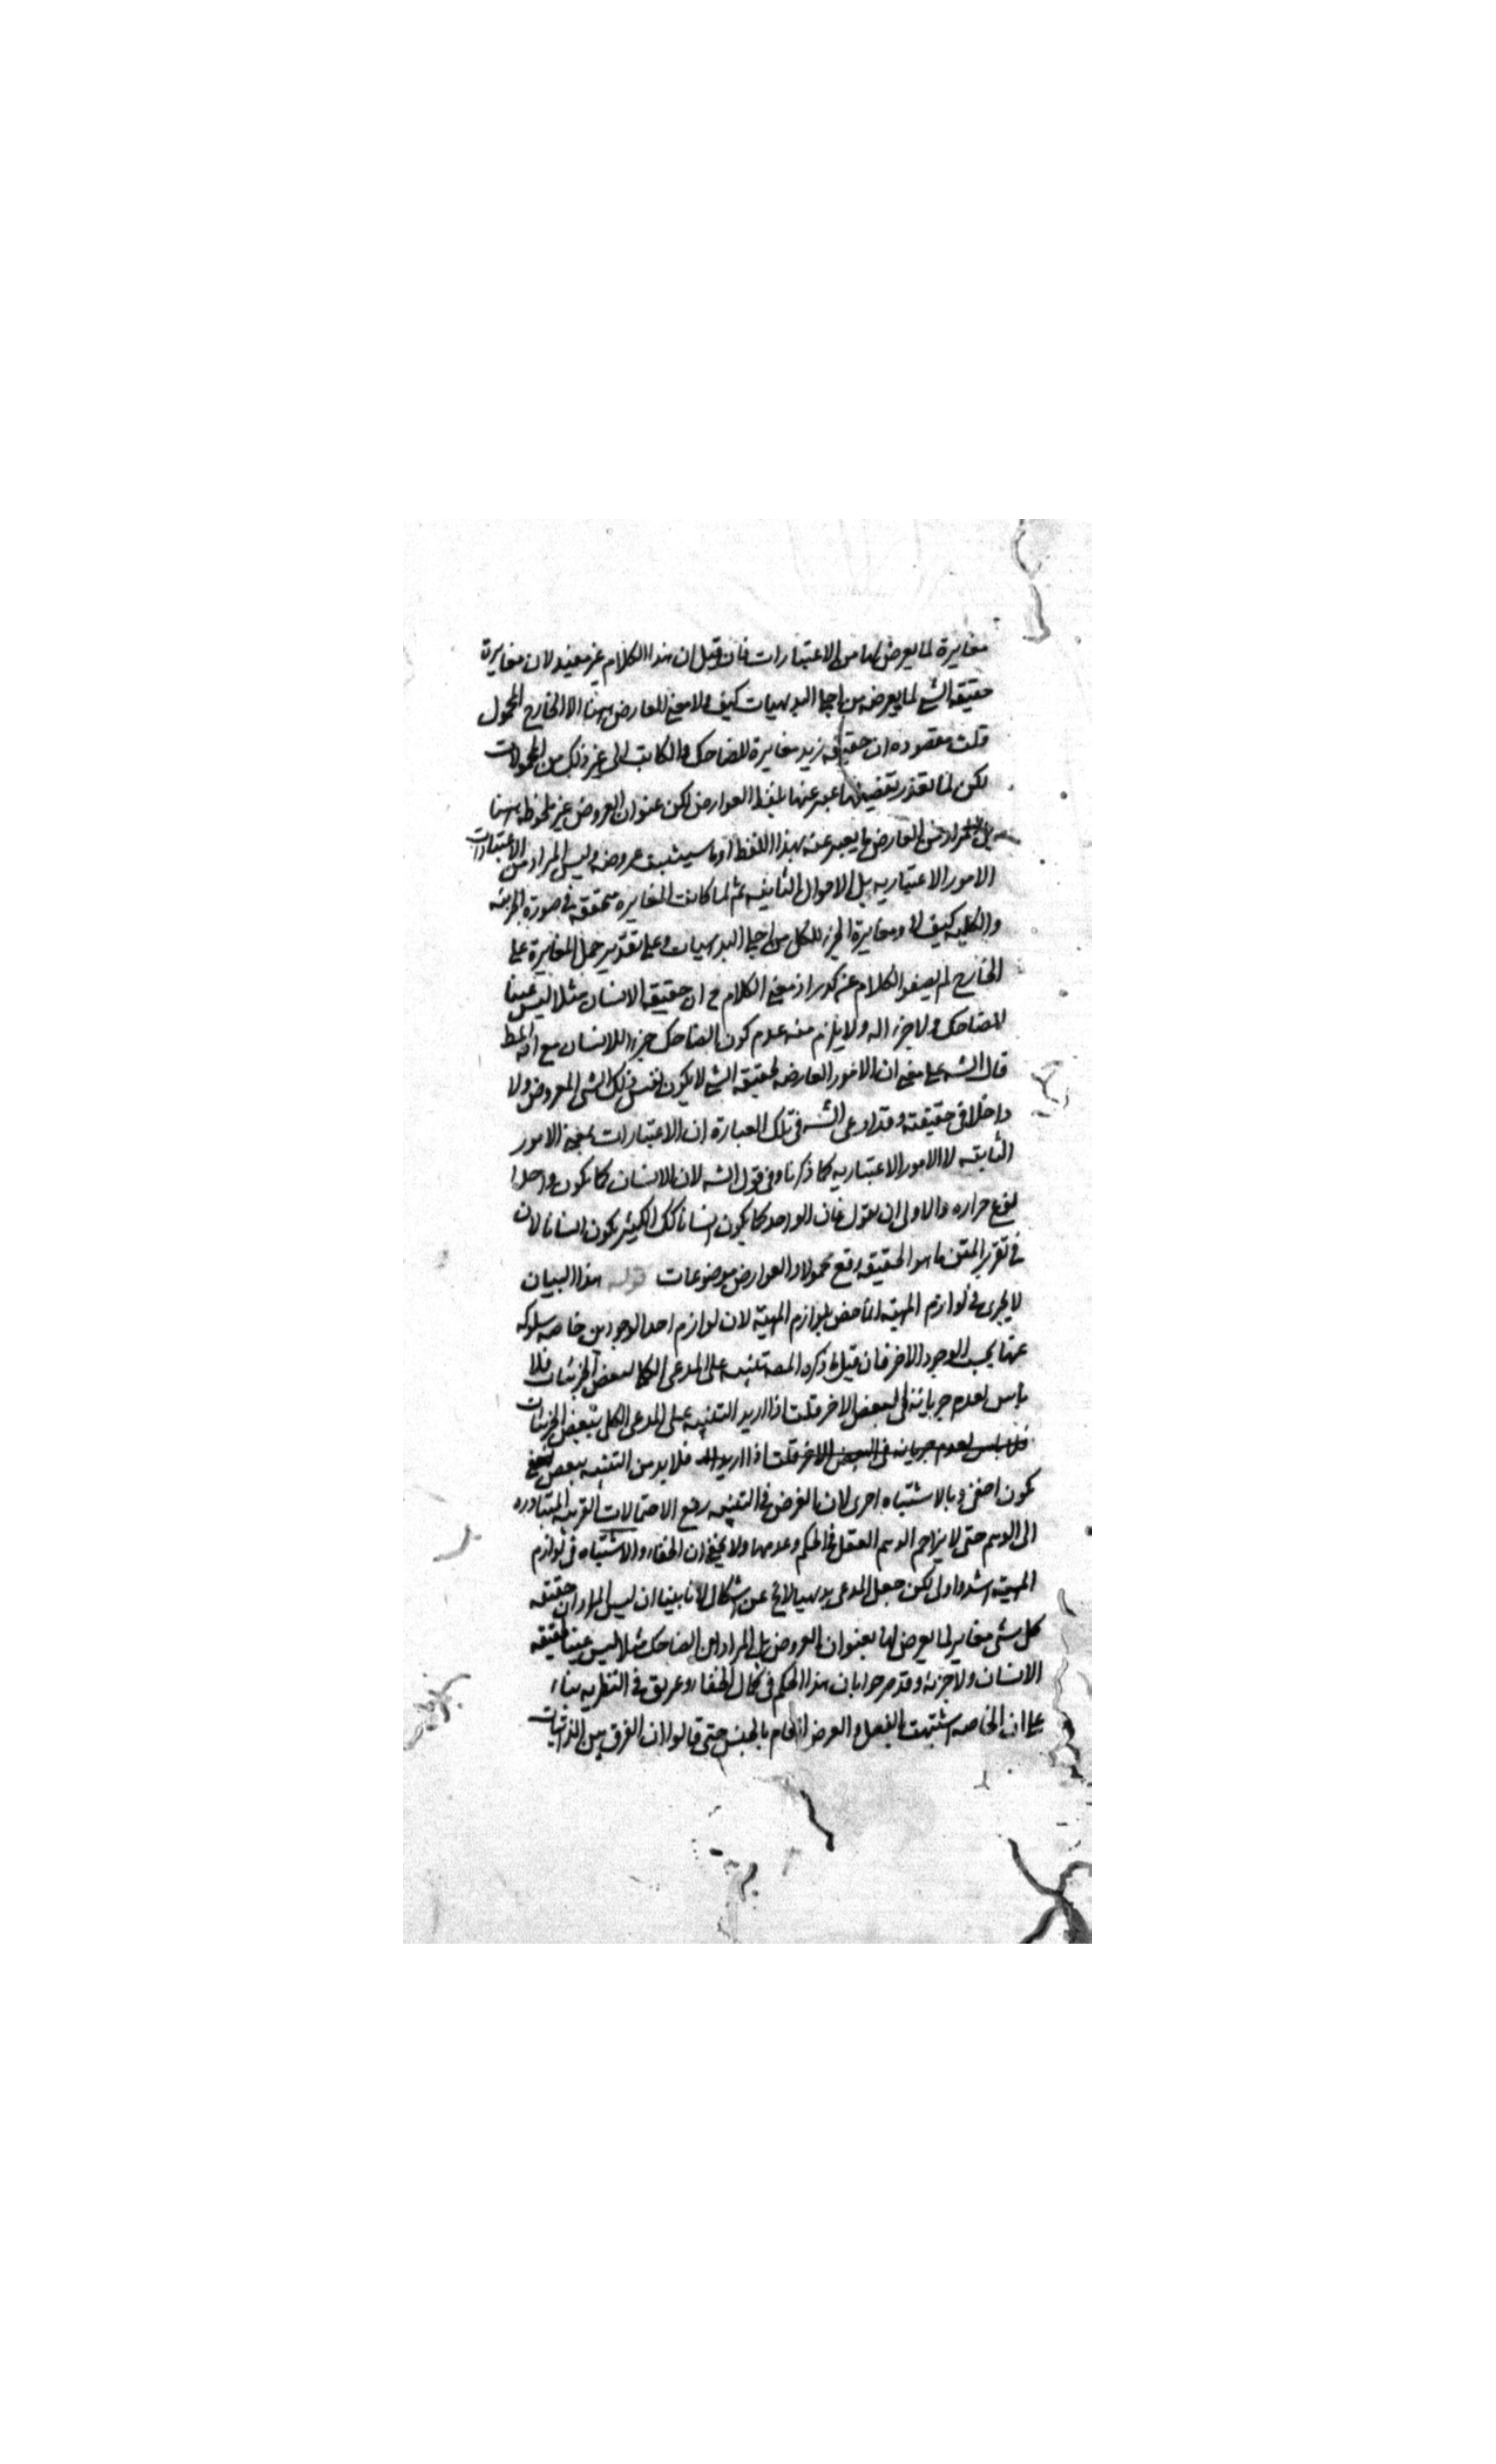 مغايرة لما يعرض لها من الاعتبارات فان قيل ان هذا الكلام غير مفيد لان مغايرة
حقيقة الشئ لما يعرضه من اجلى البديهيات كيف ولا معنى للعارض ههنا الا الخارج المحمول
قلت مقصوده ان حقيقة زيد مغايرة للضاحك والكاتب الى غير ذلك من المحمولات
لكن لما تعذر تفصيلها عبر عنها بلفظ العوارض لكن عنوان العروض غير ملحوظ ههنا
بل المراد من العارض ما يعبر عنه بهذا اللفظ او ما سيثبت عروضه وليس المراد من الاعتبارات
الامور الاعتباريه بل الاحوال الثابته ثم لما كانت المغايره متحققة فى صورة الجزئيه
والكليه كيف لا ومغايرة الجزء للكل من اجلى البديهيات وعلى تقدير حمل المغايرة على
الخارج لم يصفو الكلام عن كدر اذ معنى الكلام ح ان حقيقة الانسان مثلا ليس عينا
للضاحك ولا جزء اله ولا يلزم منه عدم كون الضاحك جزء اللانسان مع انه المط
قال الشه على معنى ان الامور العارضه لحقيقة الشئ لا يكون نفس ذلك الشئ المعروض ولا
داخلا فى حقيقته وقد ادعى الشه فى تلك العبارة ان الاعتبارات بمعنى الامور
الثابته لا الامور الاعتباريه كما ذكرنا وفى قول الشه لان الانسان كما يكون واحدا
نوع حزازه والاولى ان يقول فان الواحد كما يكون انسانا كك الكثير يكون انسانا لان
فى تقرير المتن ما هو الحقيقة وقع محمولا والعوارض موضوعات قوله هذا البيان
لا يجرى فى لوازم المهية انما خص بلوازم المهية لان لوازم احد الوجودين خاصه مسلوبه
عنها بحسب الوجود الاخر فان قيل ما ذكره المصه تنبيه على المدعى الكلى ببعض الجزئيات فلا
باس بعدم جريانه فى البعض الاخر قلت اذا اريد التنبيه على المدعى الكلى ببعض الجزئيات
فلا باس بعدم جريانه فى البعض الاخر قلت اذا اريد فلا بد من التنبيه ببعض
يكون اخفى وبالاشتباه احرى لان الغرض فى التنبيه رفع الاحتمالات القريبه المتبادره
الى الوهم حتى لا يزاحم الوهم العقل فى الحكم وعدمها ولا يخفى ان الخفاء والاشتباه فى لوازم
المهية اشد واولى لكن جعل المدعى بديهيا لا يخ عن اشكال لانا بينا ان ليس المراد ان حقيقة
كل شئ مغاير لما يعرض لها بعنوان العروض بل المراد ان الضاحك مثلا ليس عينا لحقيقة
الانسان ولا جزئه وقد صرحوا بان هذا الحكم فى كمال الخفاء وعريق فى النظريه بناء
على ان الخاصه اشتبهت بالفصل والعرض العام بالجنس حتى قالوا ان الفرق بين الذاتيات